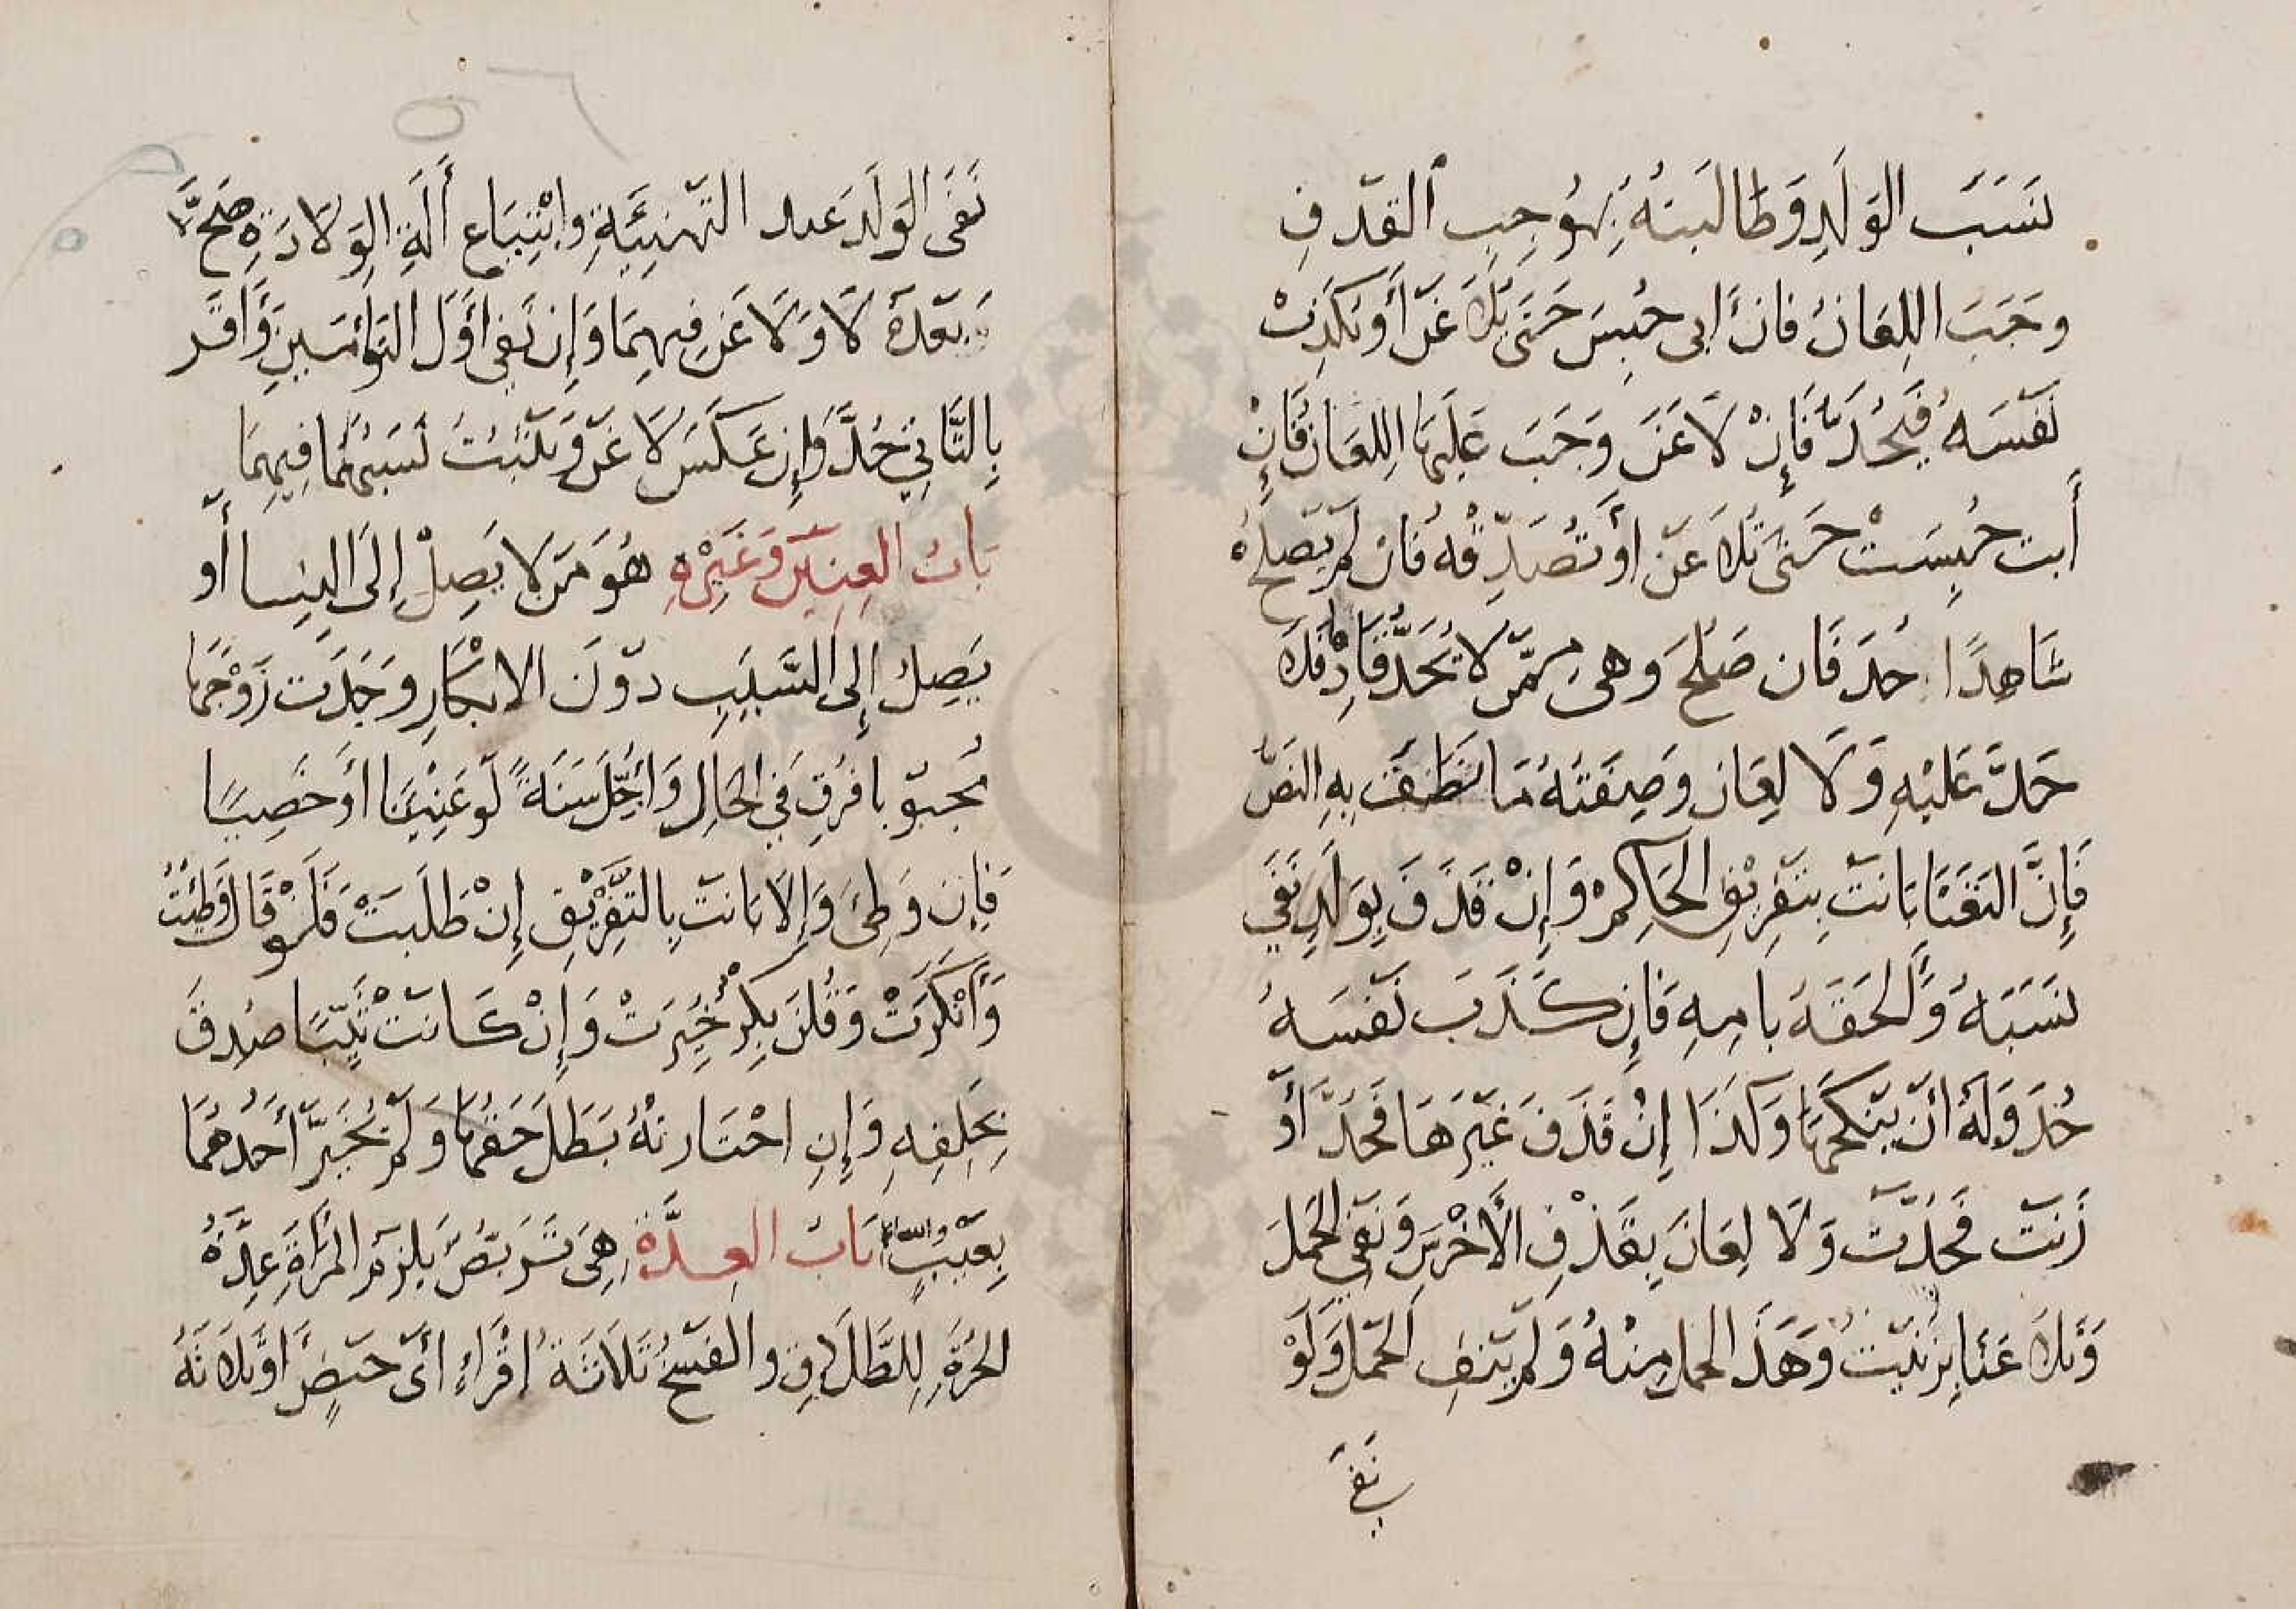 نَسَبَ الوَلَدِ وَطَالَبَتهُ بِمُوجِبِ القَذفِ
وجَبَ اللِعَانُ فان ابى حُبِسَ حَتى يُلاَعَنَ أو يكذِبْ
نَفْسَهُ فَيُحَدَّ فَإِنْ لاَعَنَ وجَبَ عَليهَا اللِعَانُ فَإِنْ
أبت حُبِسَتْ حَتى تُلاَعَنَ أو تُصَدِّقَهُ فَان لم يَصلح
شَاهِدًا حُدَ فَان صَلحَ وهىَ مِمَّن لاَ يُحَدُّ قَاذِفُهَا
حَدَّ عَليْهِ وَلاَ لِعَان وصِفَتهُ مَا نَطَقَ بِهِ النصّ
فَإِنَّ التَعَنَا بَانَت بِتَفرِيْقِ الحَاكِمِ وَإِنْ قَذَفَ بِوَلَدٍ نَفَى
نَسَبَهُ وَألحَقَهُ بامِهِ فَإِن كَذَبَ نَفْسَهُ
حُدَ وَلهُ أنْ يَنْكِحَهَا وَكَذَا إِنْ قَذَفَ غَيْرَهَا فَحُدَّ أوْ
زَنَتْ فَحُدَّتْ وَلاَ لِعَانَ بِقَذْفِ الأخْرَسِ وَنَفْىِ الحَملَ
وَتَلاَعَنَا بِزَنَيْتُ وَهَذَ الحمل مِنهُ وَلم يَنفِ الحَمْلَ وَلَوْ
نفى
نَفَى الوَلَدَ عند التَّهنِيَّةِ وابْتِيَاعِ ألَةِ الوِلاَدَةِ صَحَّ
وَبَعْدَهُ لاَ وَلاَعَنَ فِيهِمَا وَإِن نَفى أوَّلَ التوأمَيْنِ وَاقَر
بِالثَّانِي حُدَّ وَإِن عَكَسَ لاَعَنَ وَيثبُتُ نَسَبُهُمَا فِيهِمَا
بَابُ العِنِيْنِ وَغَيْرِهِ هُوَ مَن لاَ يَصِلُ إِلَى النِسا أو
يَصِلُ إِلى الثَّيِبِ دُوْنَ الابكارِ وجَدَت زَوْجَهَا
مجبوبا فرُقِ في الحَالِ وَأجِّلَ سَنَةً لو عَنِيْنًا أوْ خَصِيًا
فَإِن وَطِئَ وَإِلاَ بَانَت بِالتَفْرِيْقِ إِنْ طَلَبَتْ فَلَوْ قَالَ وَطِئتُ
وَأنْكَرَتْ وَقُلنَ بِكرٌ خُيِرَتْ وَإِنْ كَانَتْ ثَيِّبًا صُدِقَ
بِحَلِفِهِ وَإِنِ اخْتَارَتهُ بَطَلَ حَقُهَا وَلَمْ يُخَيَّرْ أحَدُهُمَا
بِعَيْبٍ والله اعلم بَابُ العِدَّة هِىَ تَرَبُصٌ يَلزَمُ المَرأَةَ عِدَّةُ
الحُرَّةِ لِلطَّلاَقِ والفَسْخِ ثَلاَثَةُ اقْرَاءِ أىْ حَيضٍ أوْ ثَلاَثَةُ